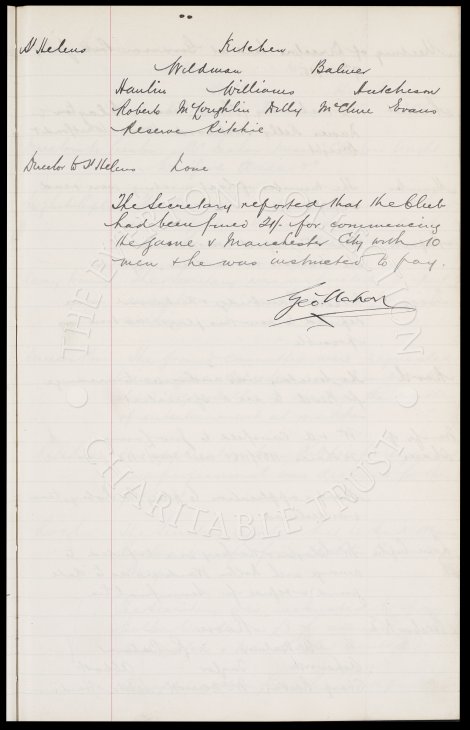 St Helens Kitchen
Wildman Balmer
Hamlin Williams Hutchison
Roberts McLoughlin Dilly McClure Evans
Reserve Ritchie
Director to St Helens Lowe
The Secretary reported that the Club
had been fined 21/- for commencing
the game v Manchester City with 10
men & he was instructed to pay.
Geo Mahon
THE EVERTON COLLECTION
CHARITABLE TRUST